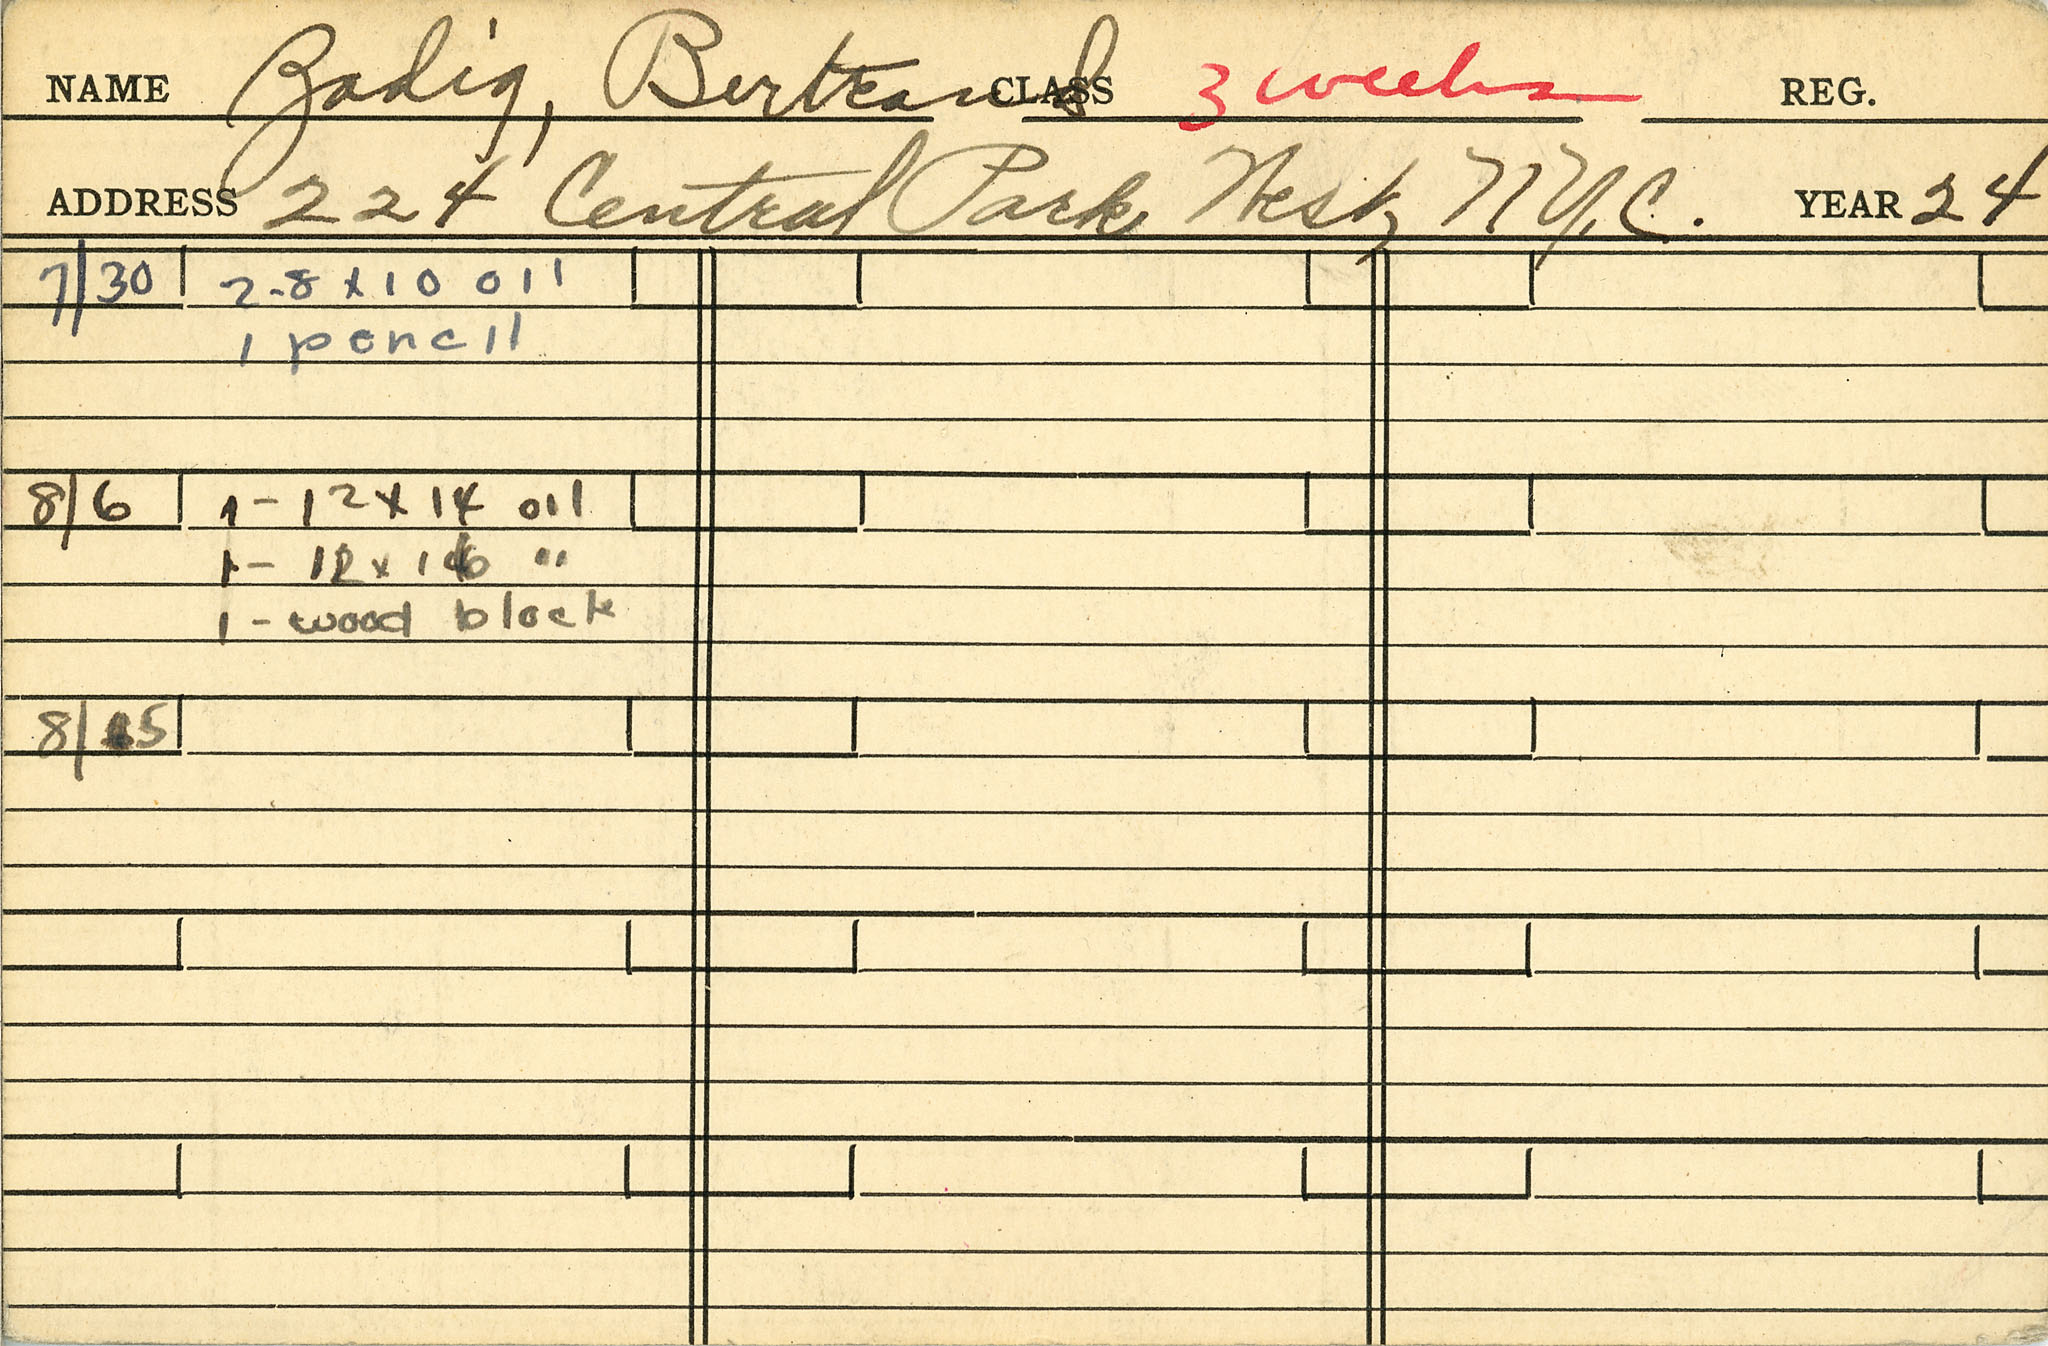 NAME Zadig, Bertrand CLASS 3 weeks REG.
ADDRESS 224 Central Park West, N.Y.C. YEAR 24
7/30 2-8 x 10 oil
1 pencil
8/6 1- 12 x 14 oil
1- 12 x 16 "
1- wood block
8/15